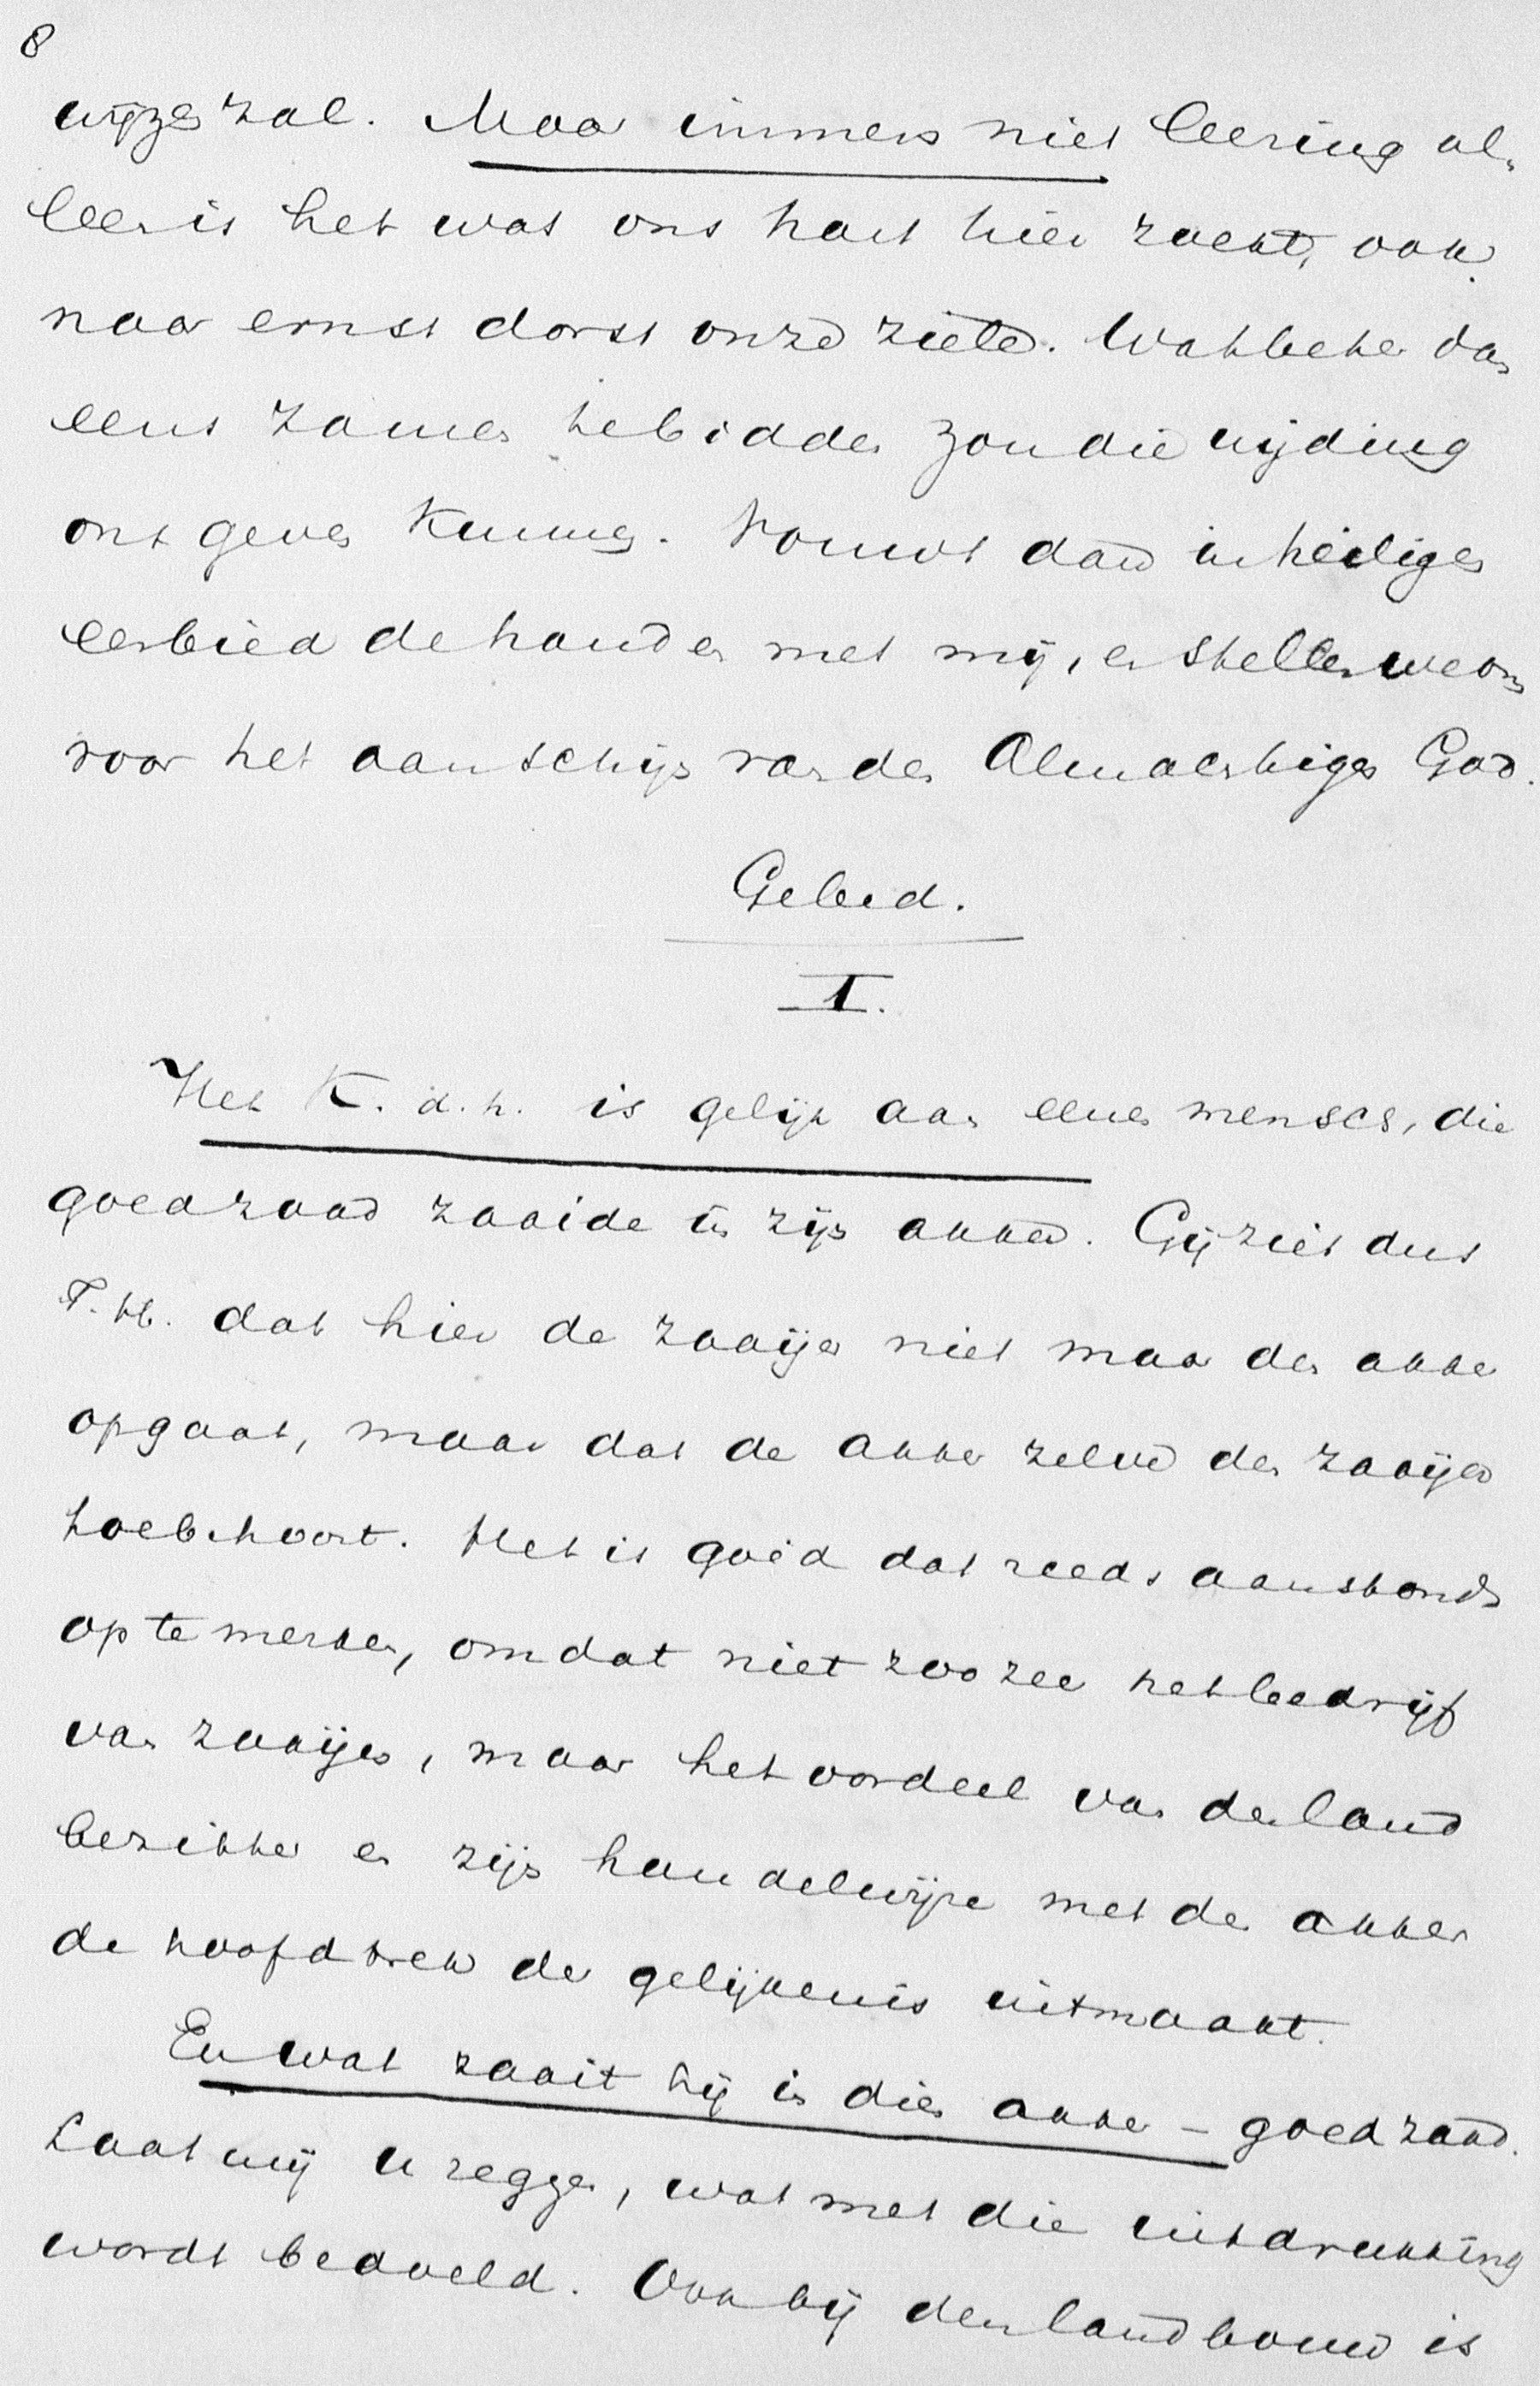 8
wijzen zal. Maar immers niet leering al-
leen is het wat ons hart hier zoekt, ook
naar ernst dorst onze ziele. Wat beter dan
eens zamen te bidden zou die wijding
ons geven kunnen. Vouwt dan in heiligen
eerbied de handen met mij, en stellen we ons
voor het aanschijn van den Almachtigen God.
Gebed.
I.
Het K. d. h. is gelijk aan eenen mensch, die
goed zaad zaaide in zijn akker. Gij ziet dus
T. H. dat hier de zaaijer niet maar den akker
opgaat, maar dat de akker zelve den zaaijer
toebehoort. Het is goed dat reeds aanstonds
op te merken, omdat niet zoo zeer het bedrijf
van zaaijen, maar het oordeel van den land
bezitter en zijn handelwijze met den akker
de hoofdtrek der gelijkenis uitmaakt.
En wat zaait hij in dien akker – goed zaad.
Laat mij u zeggen, wat met die uitdrukking
wordt bedoeld. Ook bij den landbouw is